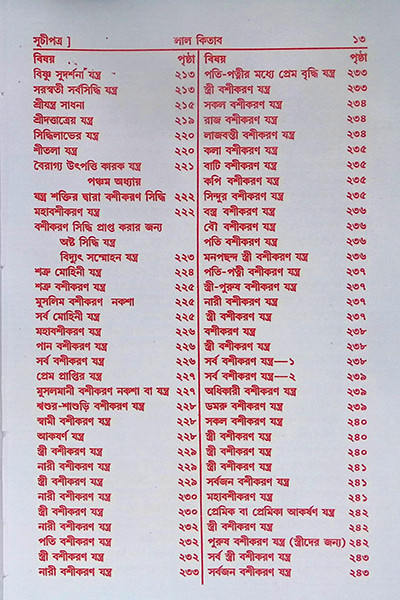 সূচীপত্র ]
লাল কিতাব
১৩
বিষয় পৃষ্ঠা
বিষ্ণু সুদর্শনা যন্ত্র ২১৩
সরস্বতী সর্বসিদ্ধি যন্ত্র ২১৩
শ্রীযন্ত্র সাধনা ২১৫
শ্রীদত্তাত্রের যন্ত্র ২১৯
সিদ্ধিলাভের যন্ত্র ২২০
শীতলা যন্ত্র ২২০
বৈরাগ্য উৎপত্তি কারক যন্ত্র ২২১
পঞ্চম অধ্যায়
যন্ত্র শক্তির দ্বারা বশীকরণ সিদ্ধি ২২২
মহাবশীকরণ যন্ত্র ২২২
বশীকরণ সিদ্ধি প্রাপ্ত করার জন্য
অষ্ট সিদ্ধি যন্ত্র
বিদ্যুৎ সম্মোহন যন্ত্র ২২৩
শত্রু মোহিনী যন্ত্র ২২৪
শত্রু বশীকরণ যন্ত্র ২২৫
মুসলিম বশীকরণ নকশা ২২৫
সর্ব মোহিনী যন্ত্র ২২৫
মহাবশীকরণ যন্ত্র ২২৬
পান বশীকরণ যন্ত্র ২২৬
সর্ব বশীকরণ যন্ত্র ২২৬
প্রেম প্রাপ্তির যন্ত্র ২২৭
মুসলমানী বশীকরণ নকশা বা যন্ত্র ২২৭
শ্বশুর-শাশুড়ি বশীকরণ যন্ত্র ২২৮
স্বামী বশীকরণ যন্ত্র ২২৮
আকর্ষণ যন্ত্র ২২৮
স্ত্রী বশীকরণ যন্ত্র ২২৯
নারী বশীকরণ যন্ত্র ২২৯
স্ত্রী বশীকরণ যন্ত্র ২২৯
নারী বশীকরণ যন্ত্র ২৩০
স্ত্রী বশীকরণ যন্ত্র ২৩০
নারী বশীকরণ যন্ত্র ২৩২
পতি বশীকরণ যন্ত্র ২৩২
স্ত্রী বশীকরণ যন্ত্র ২৩২
নারী বশীকরণ যন্ত্র ২৩৩
বিষয় পৃষ্ঠা
পতি-পত্নীর মধ্যে প্রেম বৃদ্ধি যন্ত্র ২৩৩
স্ত্রী বশীকরণ যন্ত্র ২৩৩
সকল বশীকরণ যন্ত্র ২৩৪
রাজ বশীকরণ যন্ত্র ২৩৪
লাজবন্তী বশীকরণ যন্ত্র ২৩৪
কলা বশীকরণ যন্ত্র ২৩৫
বাটি বশীকরণ যন্ত্র ২৩৫
কপি বশীকরণ যন্ত্র ২৩৫
সিন্দুর বশীকরণ যন্ত্র ২৩৫
বস্ত্র বশীকরণ যন্ত্র ২৩৬
বৌ বশীকরণ যন্ত্র ২৩৬
পতি বশীকরণ যন্ত্র ২৩৬
মনপছন্দ স্ত্রী বশীকরণ যন্ত্র ২৩৬
পতি-পত্নী বশীকরণ যন্ত্র ২৩৭
স্ত্রী-পুরুষ বশীকরণ যন্ত্র ২৩৭
নারী বশীকরণ যন্ত্র ২৩৭
স্ত্রী বশীকরণ যন্ত্র ২৩৭
বশীকরণ যন্ত্র ২৩৮
স্ত্রী বশীকরণ যন্ত্র ২৩৮
সর্ব বশীকরণ যন্ত্র—১ ২৩৮
সর্ব বশীকরণ যন্ত্র—২ ২৩৯
অধিকারী বশীকরণ যন্ত্র ২৩৯
ডমরু বশীকরণ যন্ত্র ২৩৯
সকল বশীকরণ যন্ত্র ২৪০
স্ত্রী বশীকরণ যন্ত্র ২৪০
স্ত্রী বশীকরণ যন্ত্র ২৪০
স্ত্রী বশীকরণ যন্ত্র ২৪১
সর্বজন বশীকরণ যন্ত্র ২৪১
মহাবশীকরণ যন্ত্র ২৪১
প্রেমিক বা প্রেমিকা আকর্ষণ যন্ত্র ২৪২
স্ত্রী বশীকরণ যন্ত্র ২৪২
পুরুষ বশীকরণ যন্ত্র (স্ত্রীদের জন্য) ২৪২
সর্ব স্ত্রী বশীকরণ যন্ত্র ২৪৩
সর্বজন বশীকরণ যন্ত্র ২৪৩